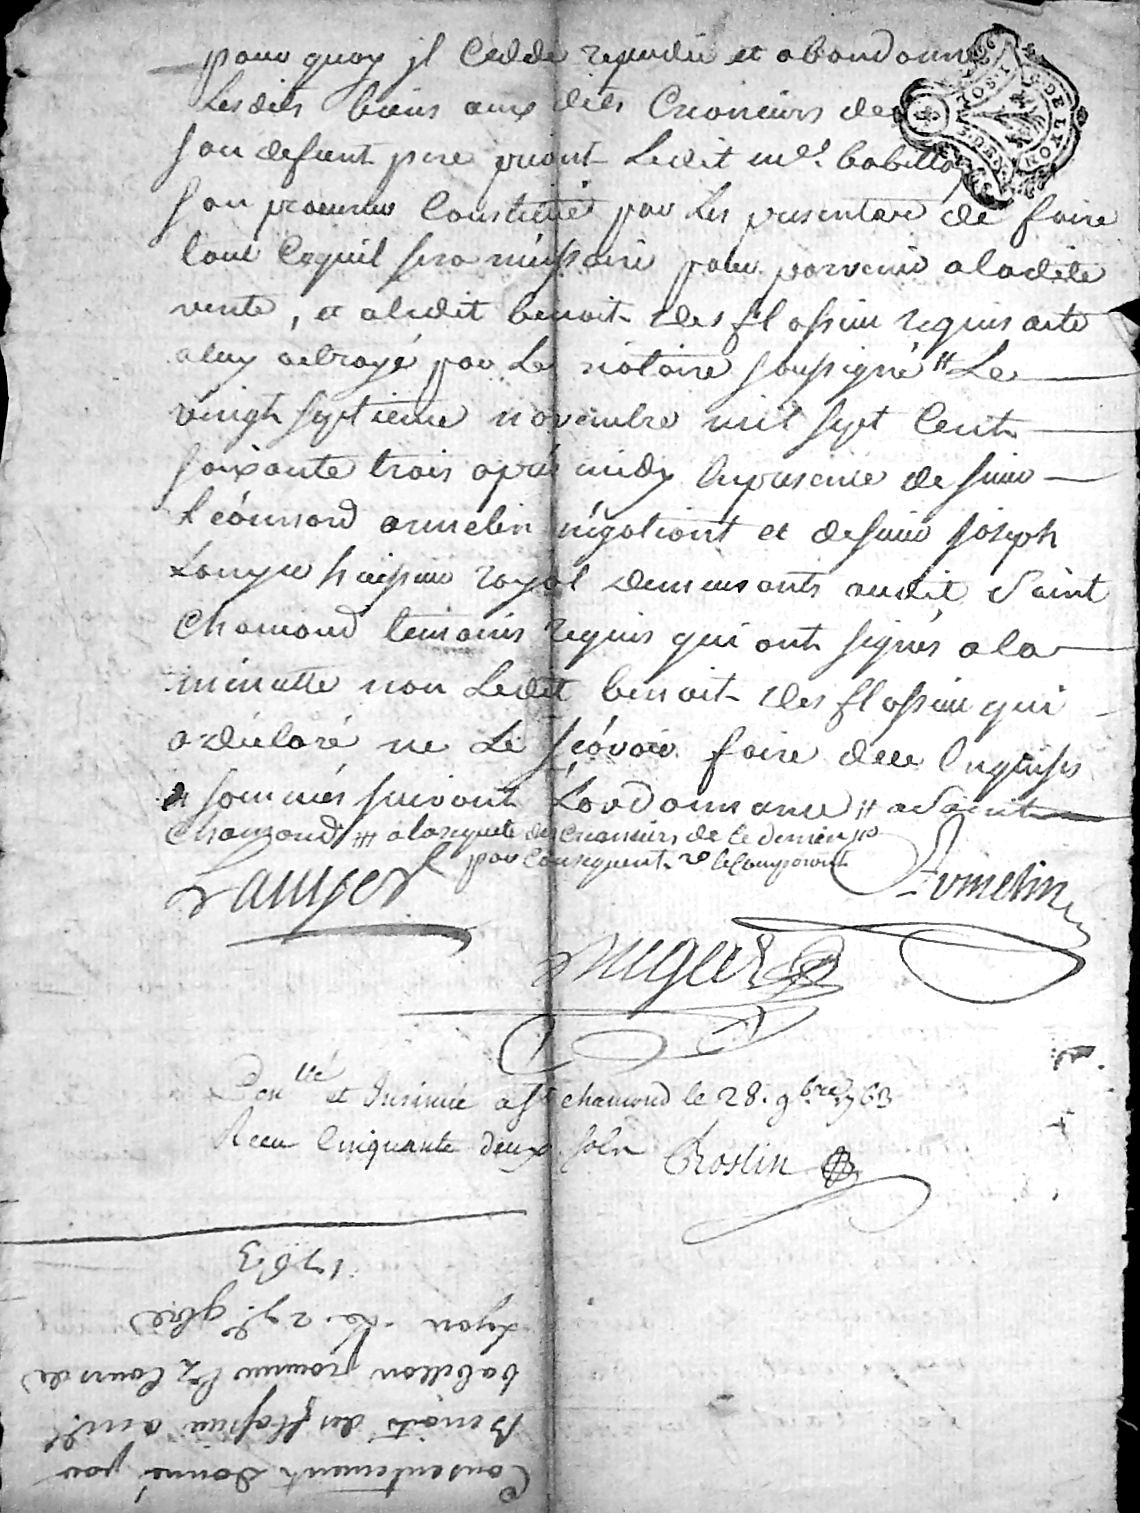 pour quoy jl cedde repudie et abandonne
Lesdits biens aux dits Creanciers de
son defunt pere priant Ledit md.e babillon
son procureur Constitué par Les presentes de faire
tout Cequil sera nécessaire pour parvenir a ladite
vente, et aledit benoit des flassieu requis acte
a luy octroyé par Le notaire soussigné # Le
vingt septieme novembre mil sept Cent
soixante trois aprés midy En presence de sieur
Léonnard armelin négotiant et de sieur joseph
Lauyer huissier royal demeurants audit Saint
Chamond temoins requis qui ont signés a la
minutte non Ledit benoit des flassieu qui
a déclaré ne Le sçávoir faire dece Enquis
& sommés suivant L'ordonnance # a Saint
Chamond # a la requete des creanciers de ce dernier #
par Consequent le Comparant
Lauyer
Armelin
Con.llé et Insinué a St chamond le 28. 9.bre 1763
Recu Cinquante deux sols Roslin
Consentement donné par
Benoit des flassieu a m.e
babillon procureur Ez Cours de
Lyon. du 27.e 9bre
1763
DE LYON